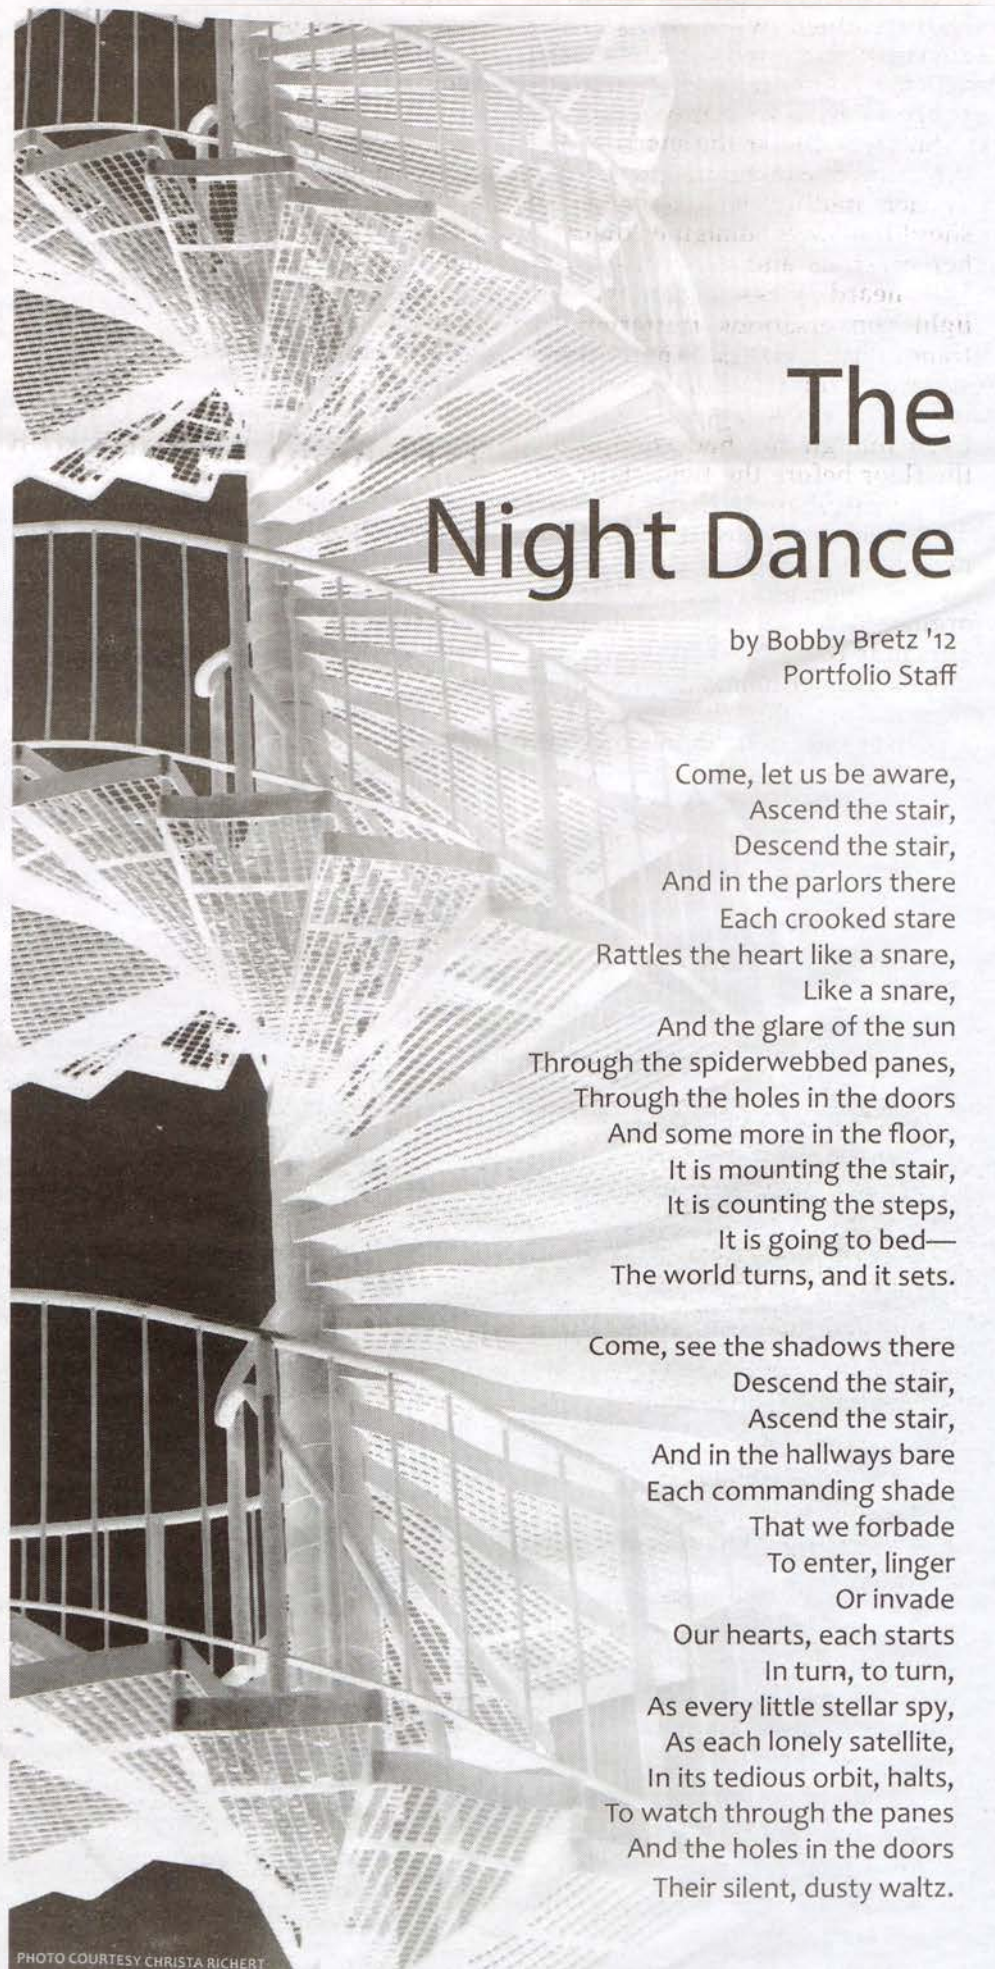 The
Night Dance
by Bobby Bretz '12
Portfolio Staff
Come, let us be aware,
Ascend the stair,
Descend the stair,
And in the parlors there
Each crooked stare
Rattles the heart like a snare,
Like a snare,
And the glare of the sun
Through the spiderwebbed panes,
Through the holes in the doors
And some more in the floor,
It is mounting the stair,
It is counting the steps,
It is going to bed—
The world turns, and it sets.
Come, see the shadows there
Descend the stair,
Ascend the stair,
And in the hallways bare
Each commanding shade
That we forbade
To enter, linger
Or invade
Our hearts, each starts
In turn, to turn,
As every little stellar spy,
As each lonely satellite,
In its tedious orbit, halts,
To watch through the panes
And the holes in the doors
Their silent, dusty waltz.
PHOTO COURTESY CHRISTA RICHERT